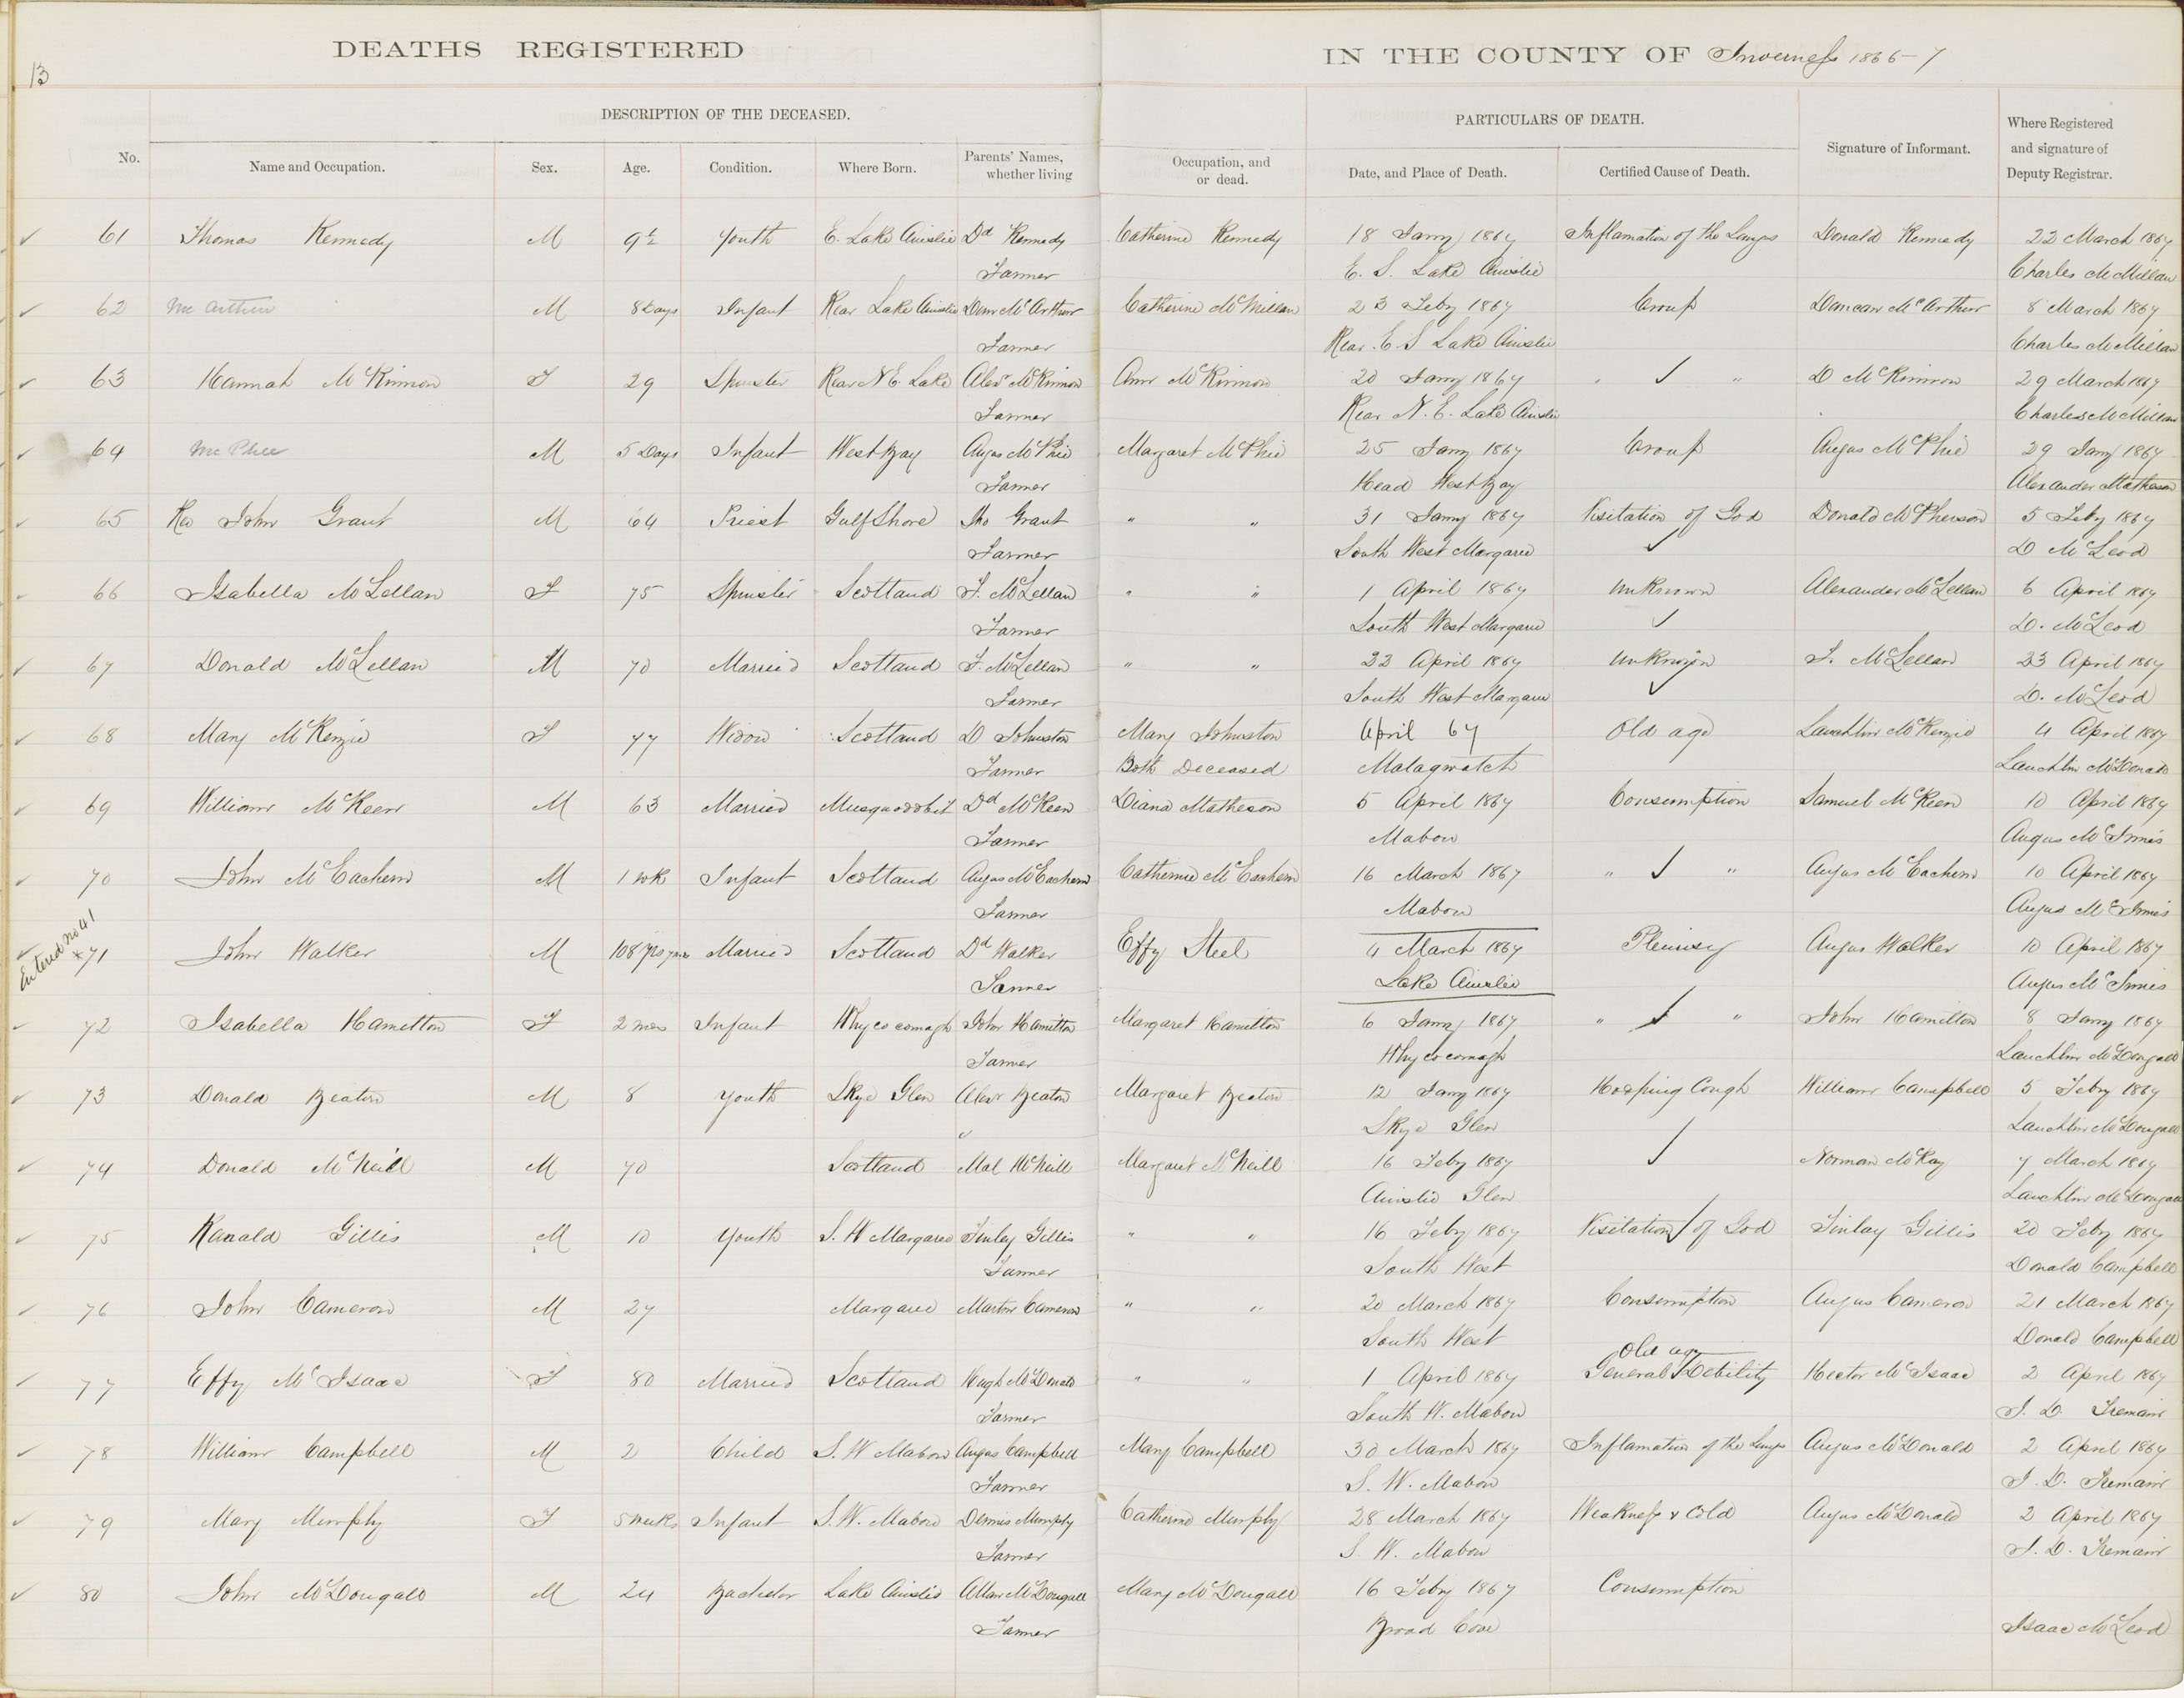 13
DEATHS REGISTERED IN THE COUNTY OF Inverness 1866-7
DESCRIPTION OF THE DECEASED. PARTICULARS OF DEATH.
No. Name and Occupation. Sex. Age. Condition. Where Born. Parents' Names, whether living Occupation, and or dead. Date, and Place of Death. Certified Cause of Death. Signature of Informant. Where Registered and signature of Deputy Registrar.
✓ 61 Thomas Kennedy M 9½ Youth E. Lake Ainslie Dd Kennedy Catherine Kennedy 18 Jany 1867 Inflamation of the Lungs Donald Kennedy 22 March 1867
Farmer E. S. Lake Ainslie Charles McMillan
✓ 62 McArthur M 8 Days Infant Rear Lake Ainslie Dunn McArthur Catherine McMillan 23 Feby 1867 Croup Duncan McArthur 8 March 1867
Farmer Rear E. S Lake Ainslie Charles McMillan
✓ 63 Hannah McKinnon F 29 Spinster Rear N E. Lake Alexr McKinnon Ann McKinnon 20 Jany 1867 " ✓ " D McKinnon 29 March 1867
Farmer Rear N. E. Lake Ainslie Charles McMillan
✓ 64 McPhee M 5 Days Infant West Bay Angus McPhie Margaret McPhie 25 Jany 1867 Croup Angus McPhie 29 Jany 1867
Farmer Head West Bay Alexander Matheson
✓ 65 Rev John Grant M 64 Priest Gulf Shore Jho Grant " " 31 Jany 1867 Visitation of God Donald McPherson 5 Feby 1867
Farmer South West Margaree ✓ D McLeod
✓ 66 Isabella McLellan F 75 Spinster Scotland F. McLellan " " 1 April 1867 unknown Alexander McLellan 6 April 1867
Farmer South West Margaree ✓ D. McLeod
✓ 67 Donald McLellan M 70 Married Scotland F. McLellan " " 22 April 1867 unknown F. McLellan 23 April 1867
Farmer South West Margaree ✓ D. McLeod
✓ 68 Mary McKenzie F 77 Widow Scotland D Johnston Mary Johnston April 67 Old age Lauchlin McKenzie 4 April 1867
Farmer Both Deceased Malagwatch Lauchlin McDonald
✓ 69 William McKeen M 63 Married Musquodobit Dd McKeen Diana Matheson 5 April 1867 Consumption Samuel McKeen 10 April 1867
Farmer Mabou Angus McInnis
✓ 70 John McEachern M 1 wk Infant Scotland Angus McEachern Catherine McEachern 16 March 1867 " ✓ " Angus McEachern 10 April 1867
Farmer Mabou Angus McInnis
Entered no 41
✓ *71 John Walker M 108 yrs Married Scotland Dd Walker Effy Steel 4 March 1867 Pleurisy Angus Walker 10 April 1867
Farmer Lake Ainslie Angus McInnis
✓ 72 Isabella Hamilton F 2 mos Infant Whycocomagh John Hamilton Margaret Hamilton 6 Jany 1867 " ✓ " John Hamilton 8 Jany 1867
Farmer Whycocomagh Lauchlin McDougall
✓ 73 Donald Beaton M 8 Youth Skye Glen Alexr Beaton Margaret Beaton 12 Jany 1867 Hooping Cough William Campbell 5 Feby 1867
" Skye Glen Lauchlin McDougall
✓ 74 Donald McNeill M 70 Scotland Mal McNeill Margaret McNeill 16 Feby 1867 ✓ Norman McKay 7 March 1867
Ainslie Glen Lauchlin McDougall
✓ 75 Ranald Gillis M 10 Youth S. W Margaree Finlay Gillis " " 16 Feby 1867 Visitation ✓ of God Finlay Gillis 20 Feby 1867
Farmer South West Donald Campbell
✓ 76 John Cameron M 27 Margaree Martin Cameron " " 20 March 1867 Consumption Angus Cameron 21 March 1867
South West Donald Campbell
Old age
✓ 77 Effy McIsaac F 80 Married Scotland Hugh McDonald " " 1 April 1867 General Debility Hector McIsaac 2 April 1867
Farmer South W. Mabou J. D. Tremain
✓ 78 William Campbell M 2 Child S. W Mabou Angus Campbell Mary Campbell 30 March 1867 Inflamation of the Lungs Angus McDonald 2 April 1867
Farmer S. W. Mabou J. D. Tremain
✓ 79 Mary Murphy F 5 weeks Infant S. W. Mabou Dennis Murphy Catherine Murphy 28 March 1867 Weakness & Cold Angus McDonald 2 April 1867
Farmer S. W. Mabou J. D. Tremain
✓ 80 John McDougall M 24 Bachelor Lake Ainslie Allan McDougall Mary McDougall 16 Feby 1867 Consumption
Farmer Broad Cove Isaac McLeod